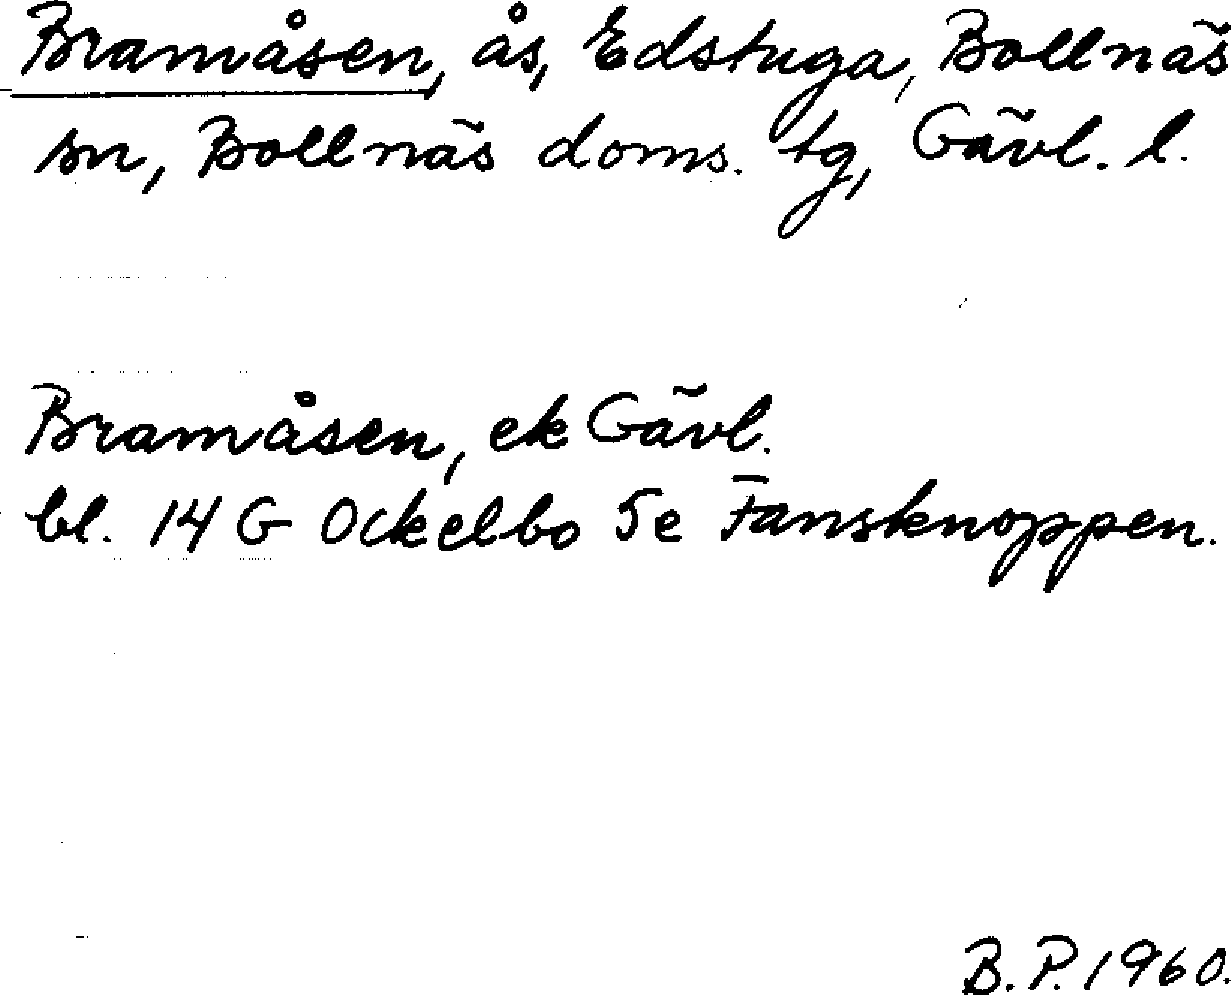 Bramåsen, ås, Edstuga, Bollnäs
sn, Bollnäs doms. tg, Gävl. l.
Bramåsen, ek Gävl.
bl. 14 G Ockelbo 5e Fansknoppen.
B. P. 1960.